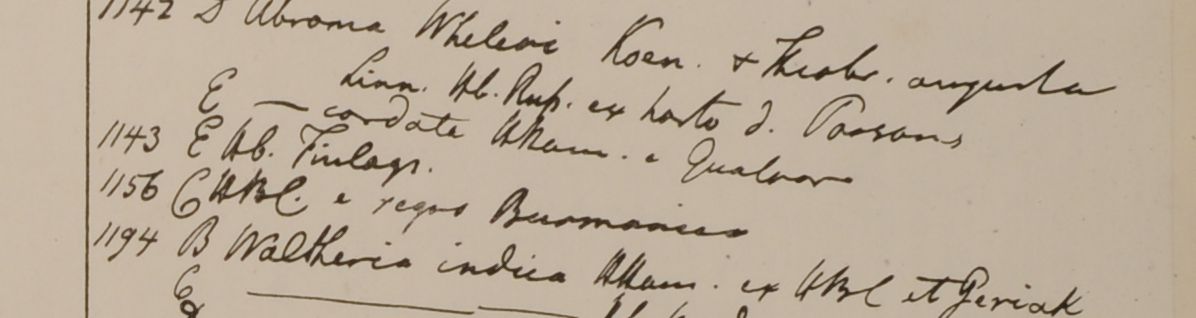 1142 D Abroma Wheleri Koen. + Theobr. augusta
Linn. Hb. Rup. ex horto d. Parsons
E — cordata HHam. e Gualpar
1143 E Hb. Finlays.
1156 C HBC. e regno Burmanico
1194 B Waltheria indica HHam. ex HBC et Geriak
C